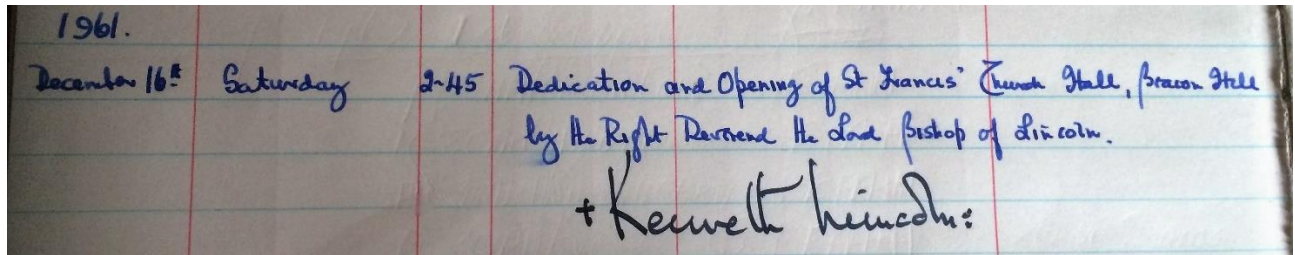 1961.
December 16th Saturday 2-45 Dedication and Opening of St Francis' Church Hall, Beacon Hill
by the Right Reverend the Lord Bishop of Lincoln.
+ Kenneth Lincoln: